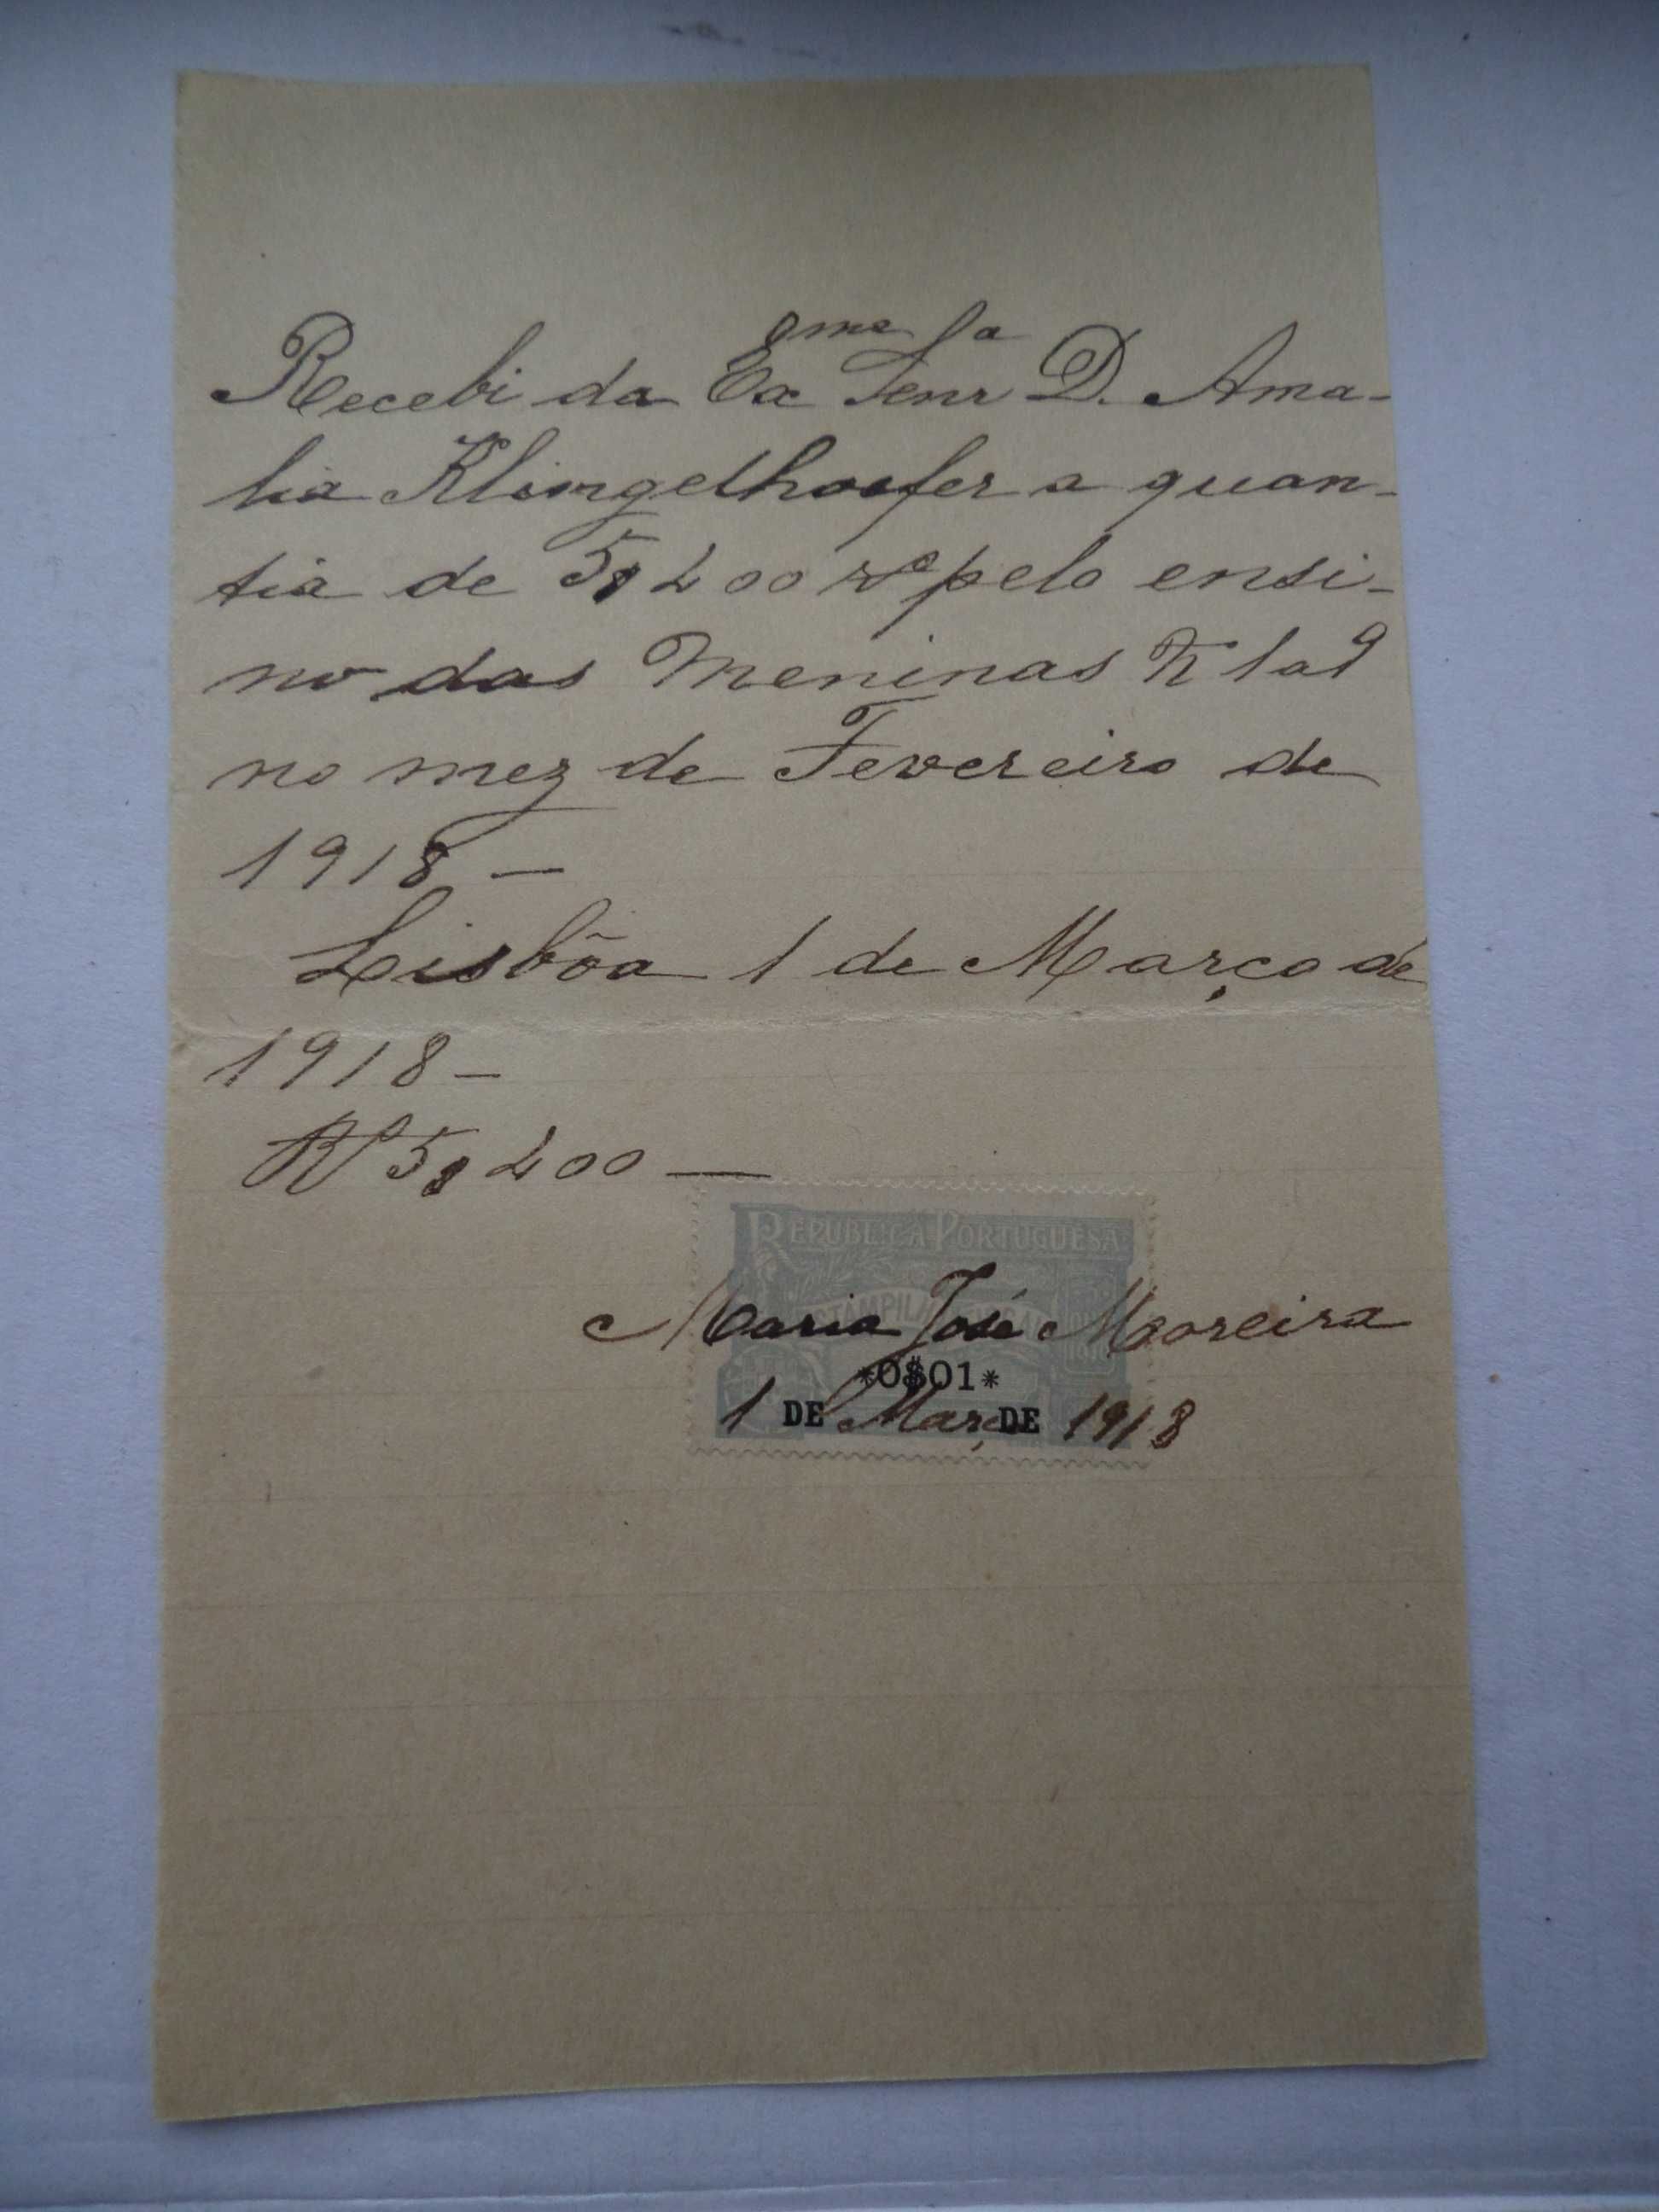 Recebi da Ex^ma Senr^a D. Ama-
lia Klingelhoefer a quan-
tia de 5$200 rs pelo ensi-
no das Meninas
no mez de Fevereiro de
1918 —
Lisbôa 1 de Março de
1918 —
Rs 5$200 —
REPUBLICA PORTUGUESA
ESTAMPILHA FISCAL
Maria José Moreira
*0$01*
1 DE Março DE 1918